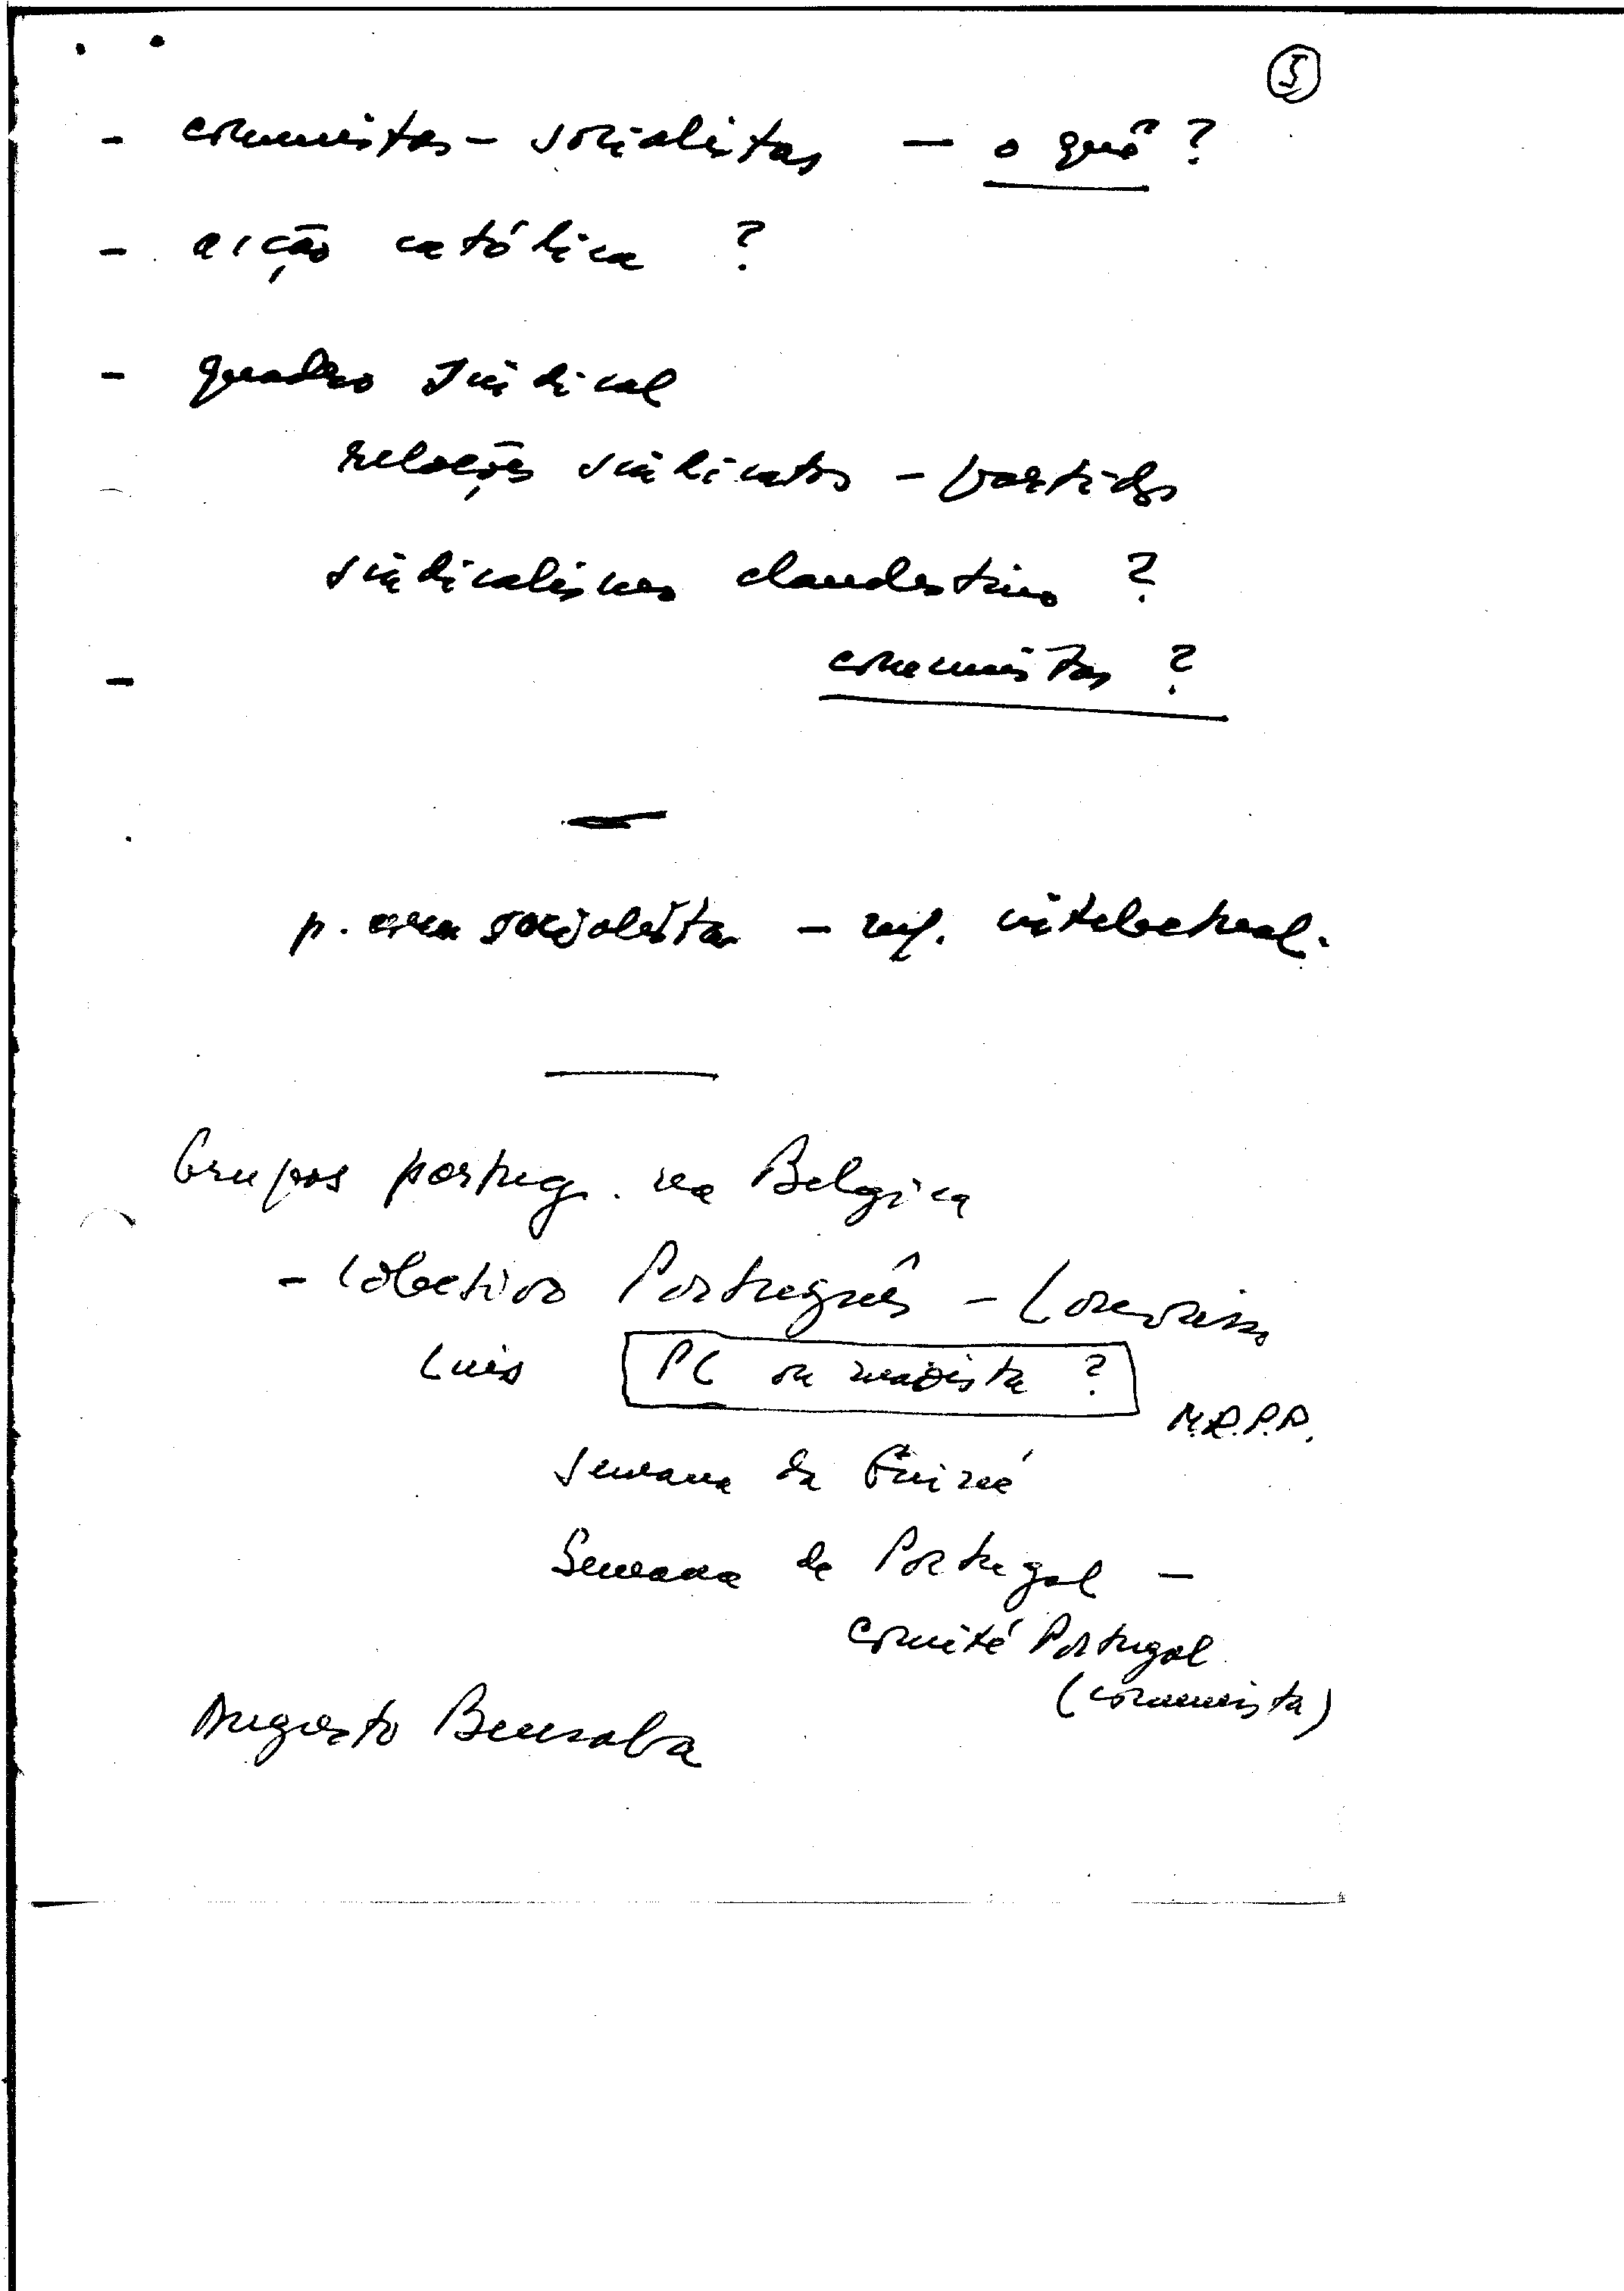 5
- comunistas - socialistas - o quê ?
- acção católica ?
- quadro sindical
relações sindicatos - partidos
sindicalismo clandestino ?
- comunistas ?
p. socialista - intelectual.
Grupos portug. na Belgica
- Colectivo Português - Louvain
Luis PC ou maoista ?
M.R.P.P.
Semana da Guiné
Semana de Portugal -
comité Portugal
(comunista)
Augusto